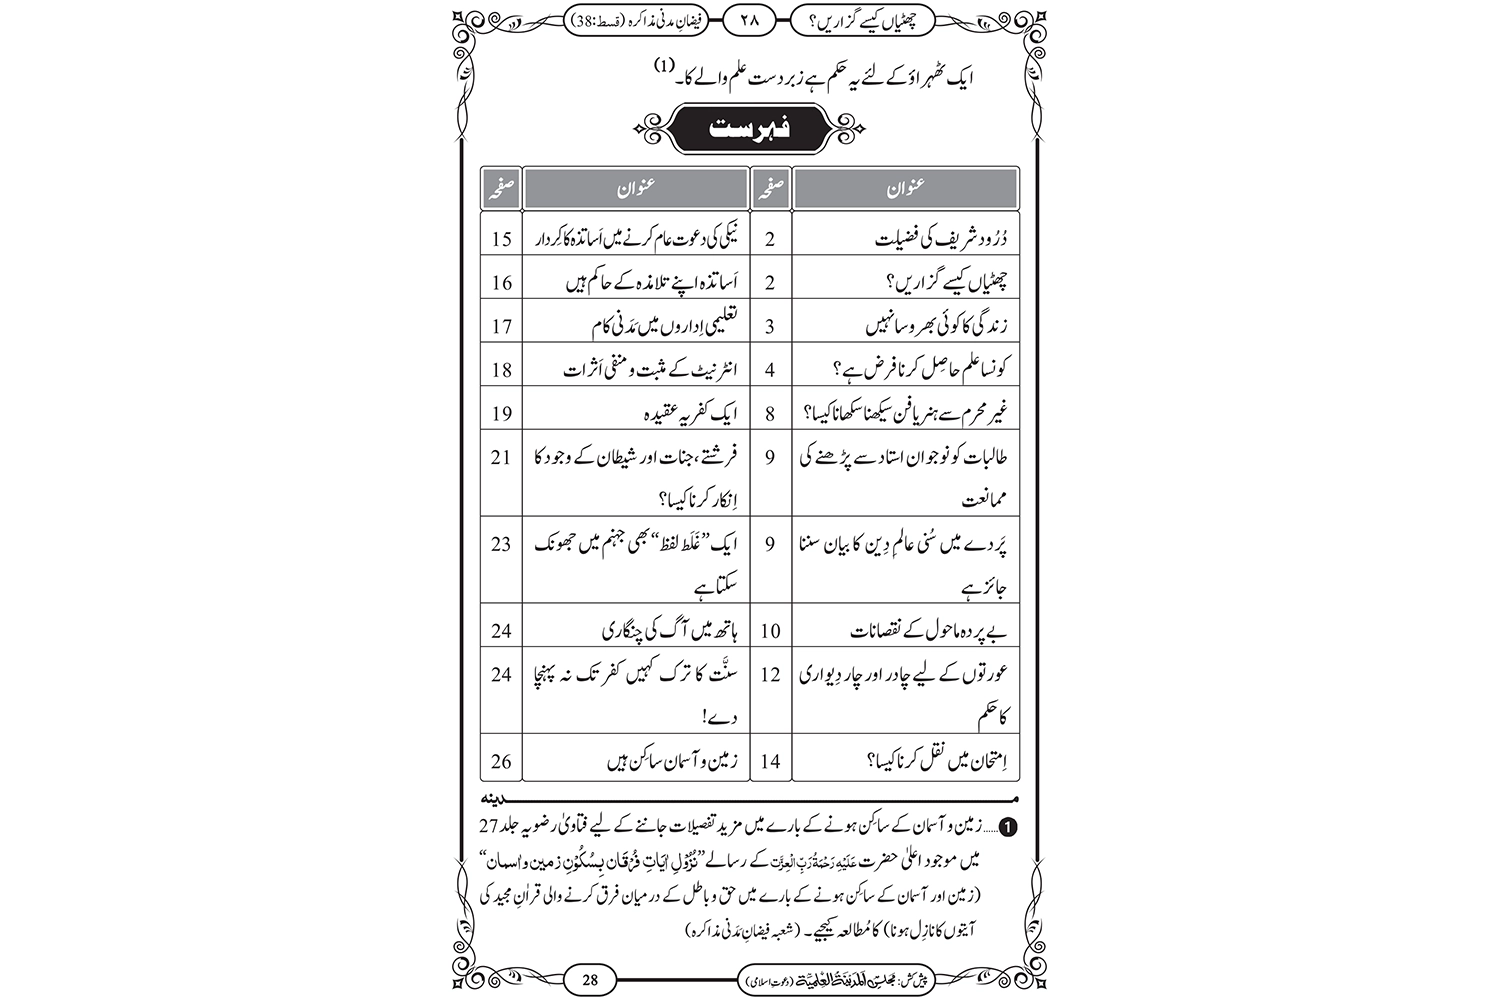 چھٹیاں کیسے گزاریں؟
۲۸
فیضانِ مدنی مذاکرہ (قسط:38)
ایک ٹھہراؤ کے لئے یہ حکم ہے زبردست علم والے کا۔(1)
فہرست
عنوان صفحہ عنوان صفحہ
دُرُود شریف کی فضیلت 2 نیکی کی دعوت عام کرنے میں اَساتذہ کا کِردار 15
چھٹیاں کیسے گزاریں؟ 2 اَساتذہ اپنے تلامذہ کے حاکم ہیں 16
زندگی کا کوئی بھروسا نہیں 3 تعلیمی اِداروں میں مَدَنی کام 17
کونسا علم حاصِل کرنا فرض ہے؟ 4 انٹرنیٹ کے مثبت و منفی اَثرات 18
غیر محرم سے ہنر یا فن سیکھنا سکھانا کیسا؟ 8 ایک کفریہ عقیدہ 19
طالبات کو نوجوان استاد سے پڑھنے کی 9 فرشتے، جنات اور شیطان کے وجود کا 21
ممانعت اِنکار کرنا کیسا؟
پَردے میں سُنی عالمِ دِین کا بیان سننا 9 ایک ”غَلَط لفظ“ بھی جہنم میں جھونک 23
جائز ہے سکتا ہے
بے پردہ ماحول کے نقصانات 10 ہاتھ میں آگ کی چنگاری 24
عورتوں کے لیے چادر اور چار دِیواری 12 سنَّت کا ترک کہیں کفر تک نہ پہنچا 24
کا حکم دے!
اِمتحان میں نقل کرنا کیسا؟ 14 زمین و آسمان ساکِن ہیں 26
مدینہ
1.....زمین و آسمان کے ساکِن ہونے کے بارے میں مزید تفصیلات جاننے کے لیے فتاویٰ رضویہ جلد 27
میں موجود اعلیٰ حضرت عَلَیْہِ رَحْمَۃُ رَبِّ الْعِزَّت کے رسالے ”نُزُوْلِ اٰیَاتِ فُرْقَان بِسُکُوْنِ زمین و اٰسمان“
(زمین اور آسمان کے ساکِن ہونے کے بارے میں حق و باطل کے درمیان فرق کرنے والی قراٰنِ مجید کی
آیتوں کا نازِل ہونا) کا مُطالعہ کیجیے۔ (شعبہ فیضانِ مَدَنی مذاکرہ)
پیش کش: مجلس المدینۃ العلمیۃ (دعوتِ اسلامی)
28